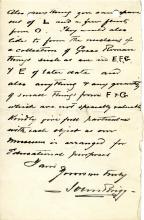 Also anything you can spare
out of L and a few family
from O. They would also
like to form the nucleus of
a collection of Greco Roman
things such as are in E.F.G
& E of later date and
also anything & any quantity
of small things from F & G
which are not specially valuable
Kindly give full particulars
with each object as our
Museum is arranged for
Educational purposes
I am
Yours very truly